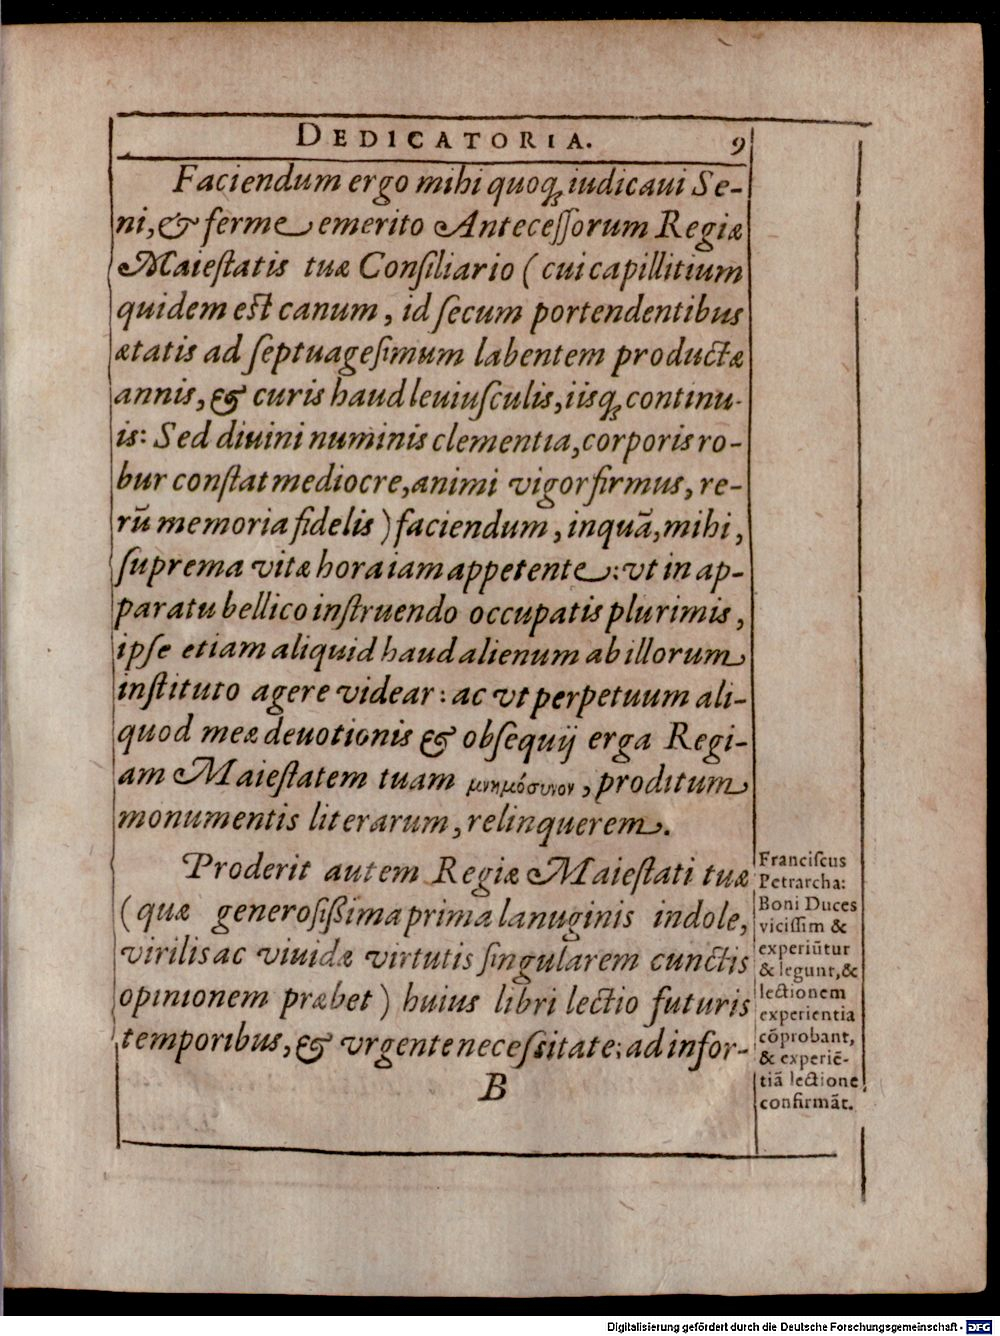 DEDICATORIA. 9
Faciendum ergo mihi quoq; iudicaui Se-
ni, & ferme emerito Antecessorum Regiæ
Maiestatis tuæ Consiliario ( cui capillitium
quidem est canum, id secum portendentibus
ætatis ad septuagesimum labentem productæ
annis, & curis haud leuiusculis, iisq; continu-
is: Sed diuini numinis clementia, corporis ro-
bur constat mediocre, animi vigor firmus, re-
rū memoria fidelis ) faciendum, inquā, mihi,
suprema vitæ hora iam appetente: vt in ap-
paratu bellico instruendo occupatis plurimis,
ipse etiam aliquid haud alienum ab illorum
instituto agere videar: ac vt perpetuum ali-
quod meæ deuotionis & obsequij erga Regi-
am Maiestatem tuam μνημόσυνον, proditum
monumentis literarum, relinquerem.
Proderit autem Regiæ Maiestati tuæ
(quæ generosißima prima lanuginis indole,
virilis ac viuidæ virtutis singularem cunctis
opinionem præbet ) huius libri lectio futuris
temporibus, & vrgente necessitate: ad infor-
B
Franciscus
Petrarcha:
Boni Duces
vicissim &
experiūtur
& legunt, &
lectionem
experientia
cōprobant,
& experiē-
tiā lectione
confirmāt.
Digitalisierung gefördert durch die Deutsche Forschungsgemeinschaft - DFG